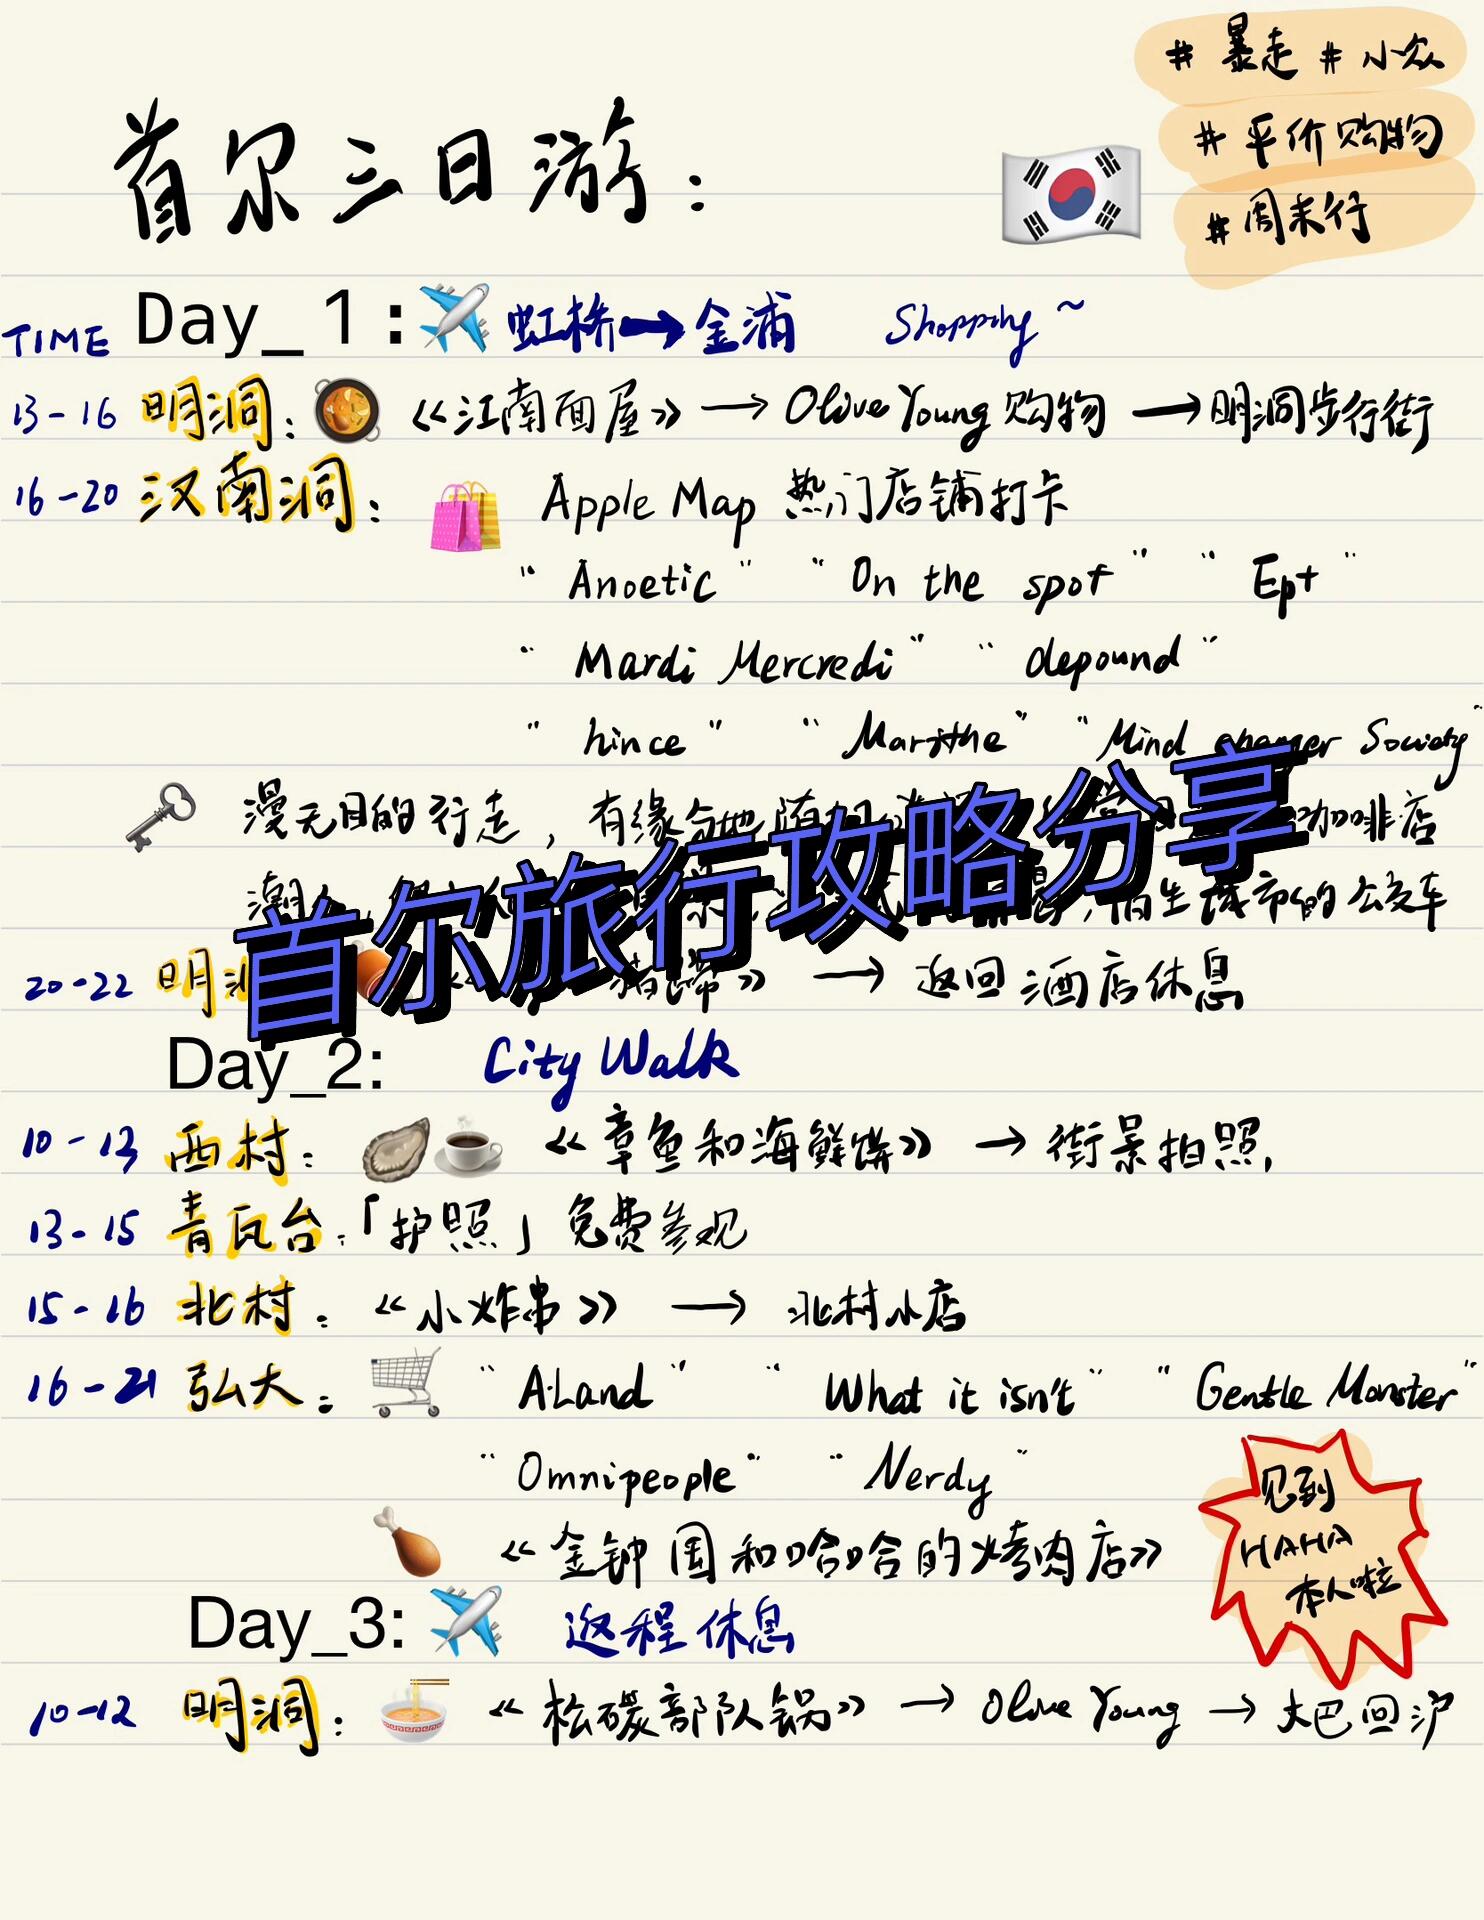 # 暴走 # 小众
# 平价购物
# 周末行
首尔三日游：
TIME Day_1: 虹桥→金浦 Shopping ~
13-16 明洞：《江南面屋》→ Olive Young 购物 → 明洞步行街
16-20 汉南洞： Apple Map 热门店铺打卡
"Anoetic" "On the spot" "Ept"
"Mardi Mercredi" "depound"
"hince" "Marithe" "Mind Society"
漫无目的行走，有缘分地随 咖啡店
潮 城市的公交车
首尔旅行攻略分享
20-22 明 猪蹄》 → 返回酒店休息
Day_2: City Walk
10-13 西村： 《章鱼和海鲜饼》 → 街景拍照，
13-15 青瓦台：「护照」免费参观
15-16 北村：《小炸串》 → 北村小店
16-21 弘大： "ALand" "What it isn't" "Gentle Monster"
"Omnipeople" "Nerdy"
《金钟国和哈哈的烤肉店》
见到
HAHA
本人啦
Day_3: 返程休息
10-12 明洞： 《松碳部队锅》 → Olive Young → 大巴回沪